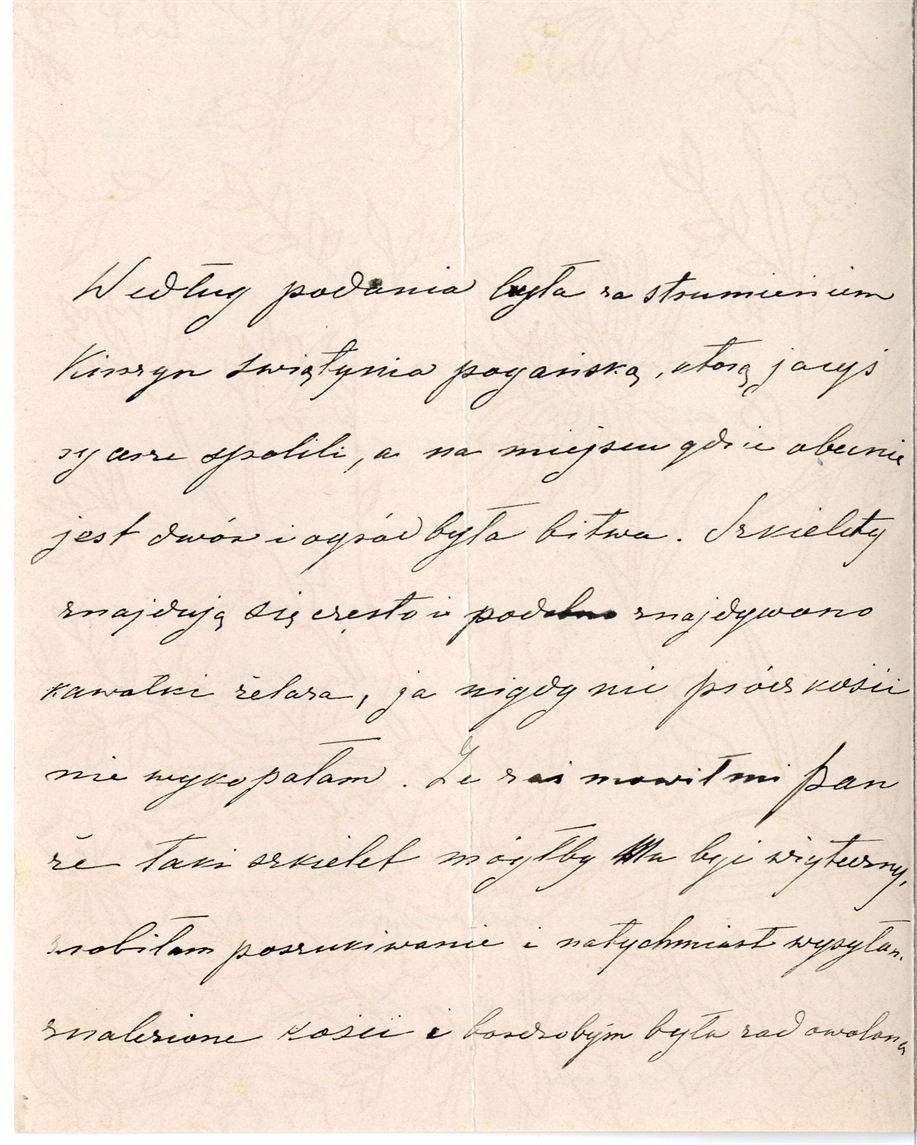 Według podania była za strumieniem
Kinzyn świątynia pogańską, którą jacyś
rycerze spalili, a na miejscu gdzie obecnie
jest dwór i ogród była bitwa. Szkielety
znajdują się często i podobno znajdywano
kawałki żelaza, ja nigdy nic prócz kości
nie wykopałam. Że zaś mowił mi Pan
że taki szkielet mógłby być użyteczny,
zrobiłam poszukiwanie i natychmiast wysyłam
znalezione kości i bardzobym była zadowoloną